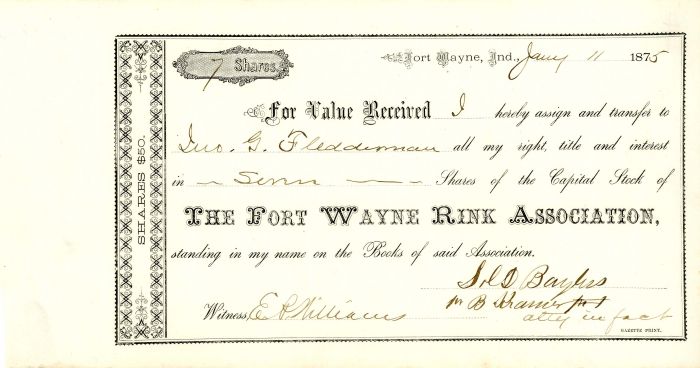 7 Shares.
Fort Wayne, Ind., Jany 11 1875
For Value Received I hereby assign and transfer to
Jno. G. Fledderman all my right, title and interest
in Seven Shares of the Capital Stock of
THE FORT WAYNE RINK ASSOCIATION,
standing in my name on the Books of said Association.
Sol D Bayless
B Kramer
Witness, E S Williams
atty in fact
GAZETTE PRINT.
SHARES $50.